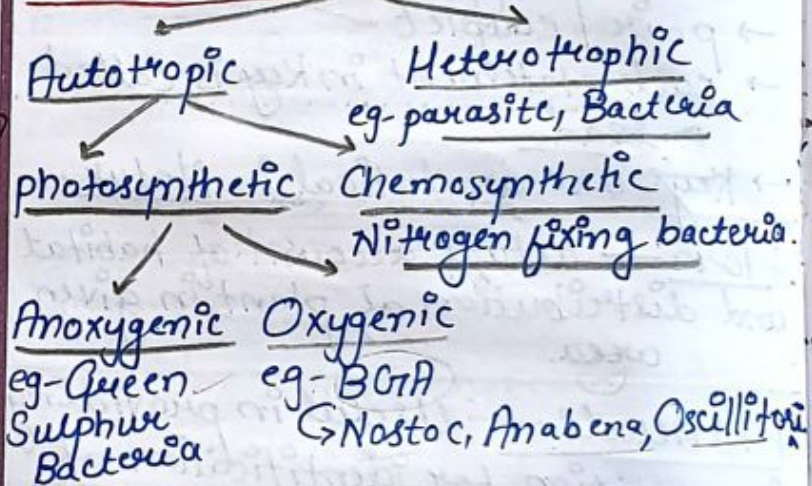 Autotropic
Heterotrophic
eg- parasite, Bacteria
photosynthetic
Chemosynthetic
Nitrogen fixing bacteria.
Anoxygenic
eg- Green
Sulphur
Bacteria
Oxygenic
eg- BGA
Nostoc, Anabena, Oscillitori